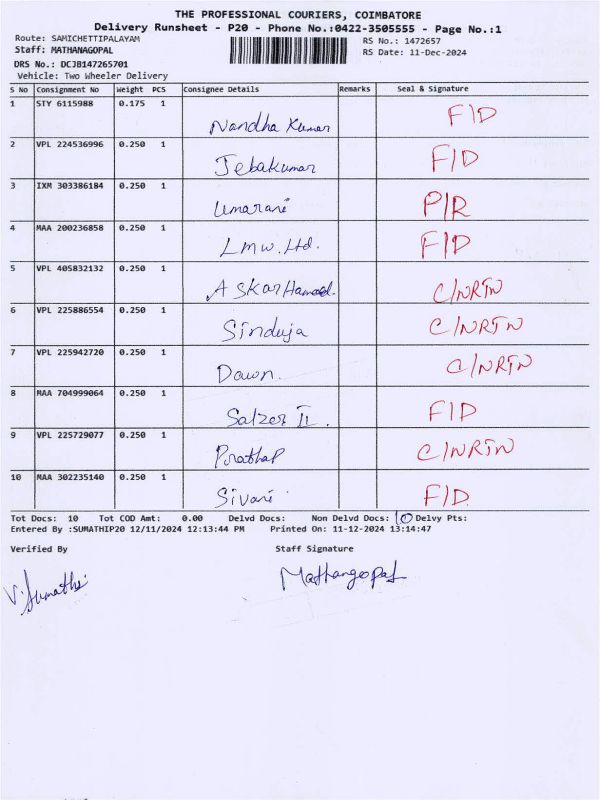 THE PROFESSIONAL COURIERS, COIMBATORE
Delivery Runsheet - P20 - Phone No.:0422-3505555 - Page No.:1
Route: SAMICHETTIPALAYAM RS No.: 1472657
Staff: MATHANAGOPAL RS Date: 11-Dec-2024
DRS No.: DCJB147265701
Vehicle: Two Wheeler Delivery
S No Consignment No Weight PCS Consignee Details Remarks Seal & Signature
1 STY 6115988 0.175 1 Nandha Kumar F/D
2 VPL 224536996 0.250 1 Jebakumar F/D
3 IXM 303386184 0.250 1 Umarani P/R
4 MAA 200236858 0.250 1 LMW. Ltd. F/D
5 VPL 405832132 0.250 1 Askar Hameed. C/NRTN
6 VPL 225886554 0.250 1 Sinduja C/NRTN
7 VPL 225942720 0.250 1 Dawn. C/NRTN
8 MAA 704999064 0.250 1 Salzer F/D
9 VPL 225729077 0.250 1 Prathap C/NRTN
10 MAA 302235140 0.250 1 Sivani F/D
Tot Docs: 10 Tot COD Amt: 0.00 Delvd Docs: Non Delvd Docs: 10 Delvy Pts:
Entered By :SUMATHIP20 12/11/2024 12:13:44 PM Printed On: 11-12-2024 13:14:47
Verified By Staff Signature
V. Sumathi Mathangopal